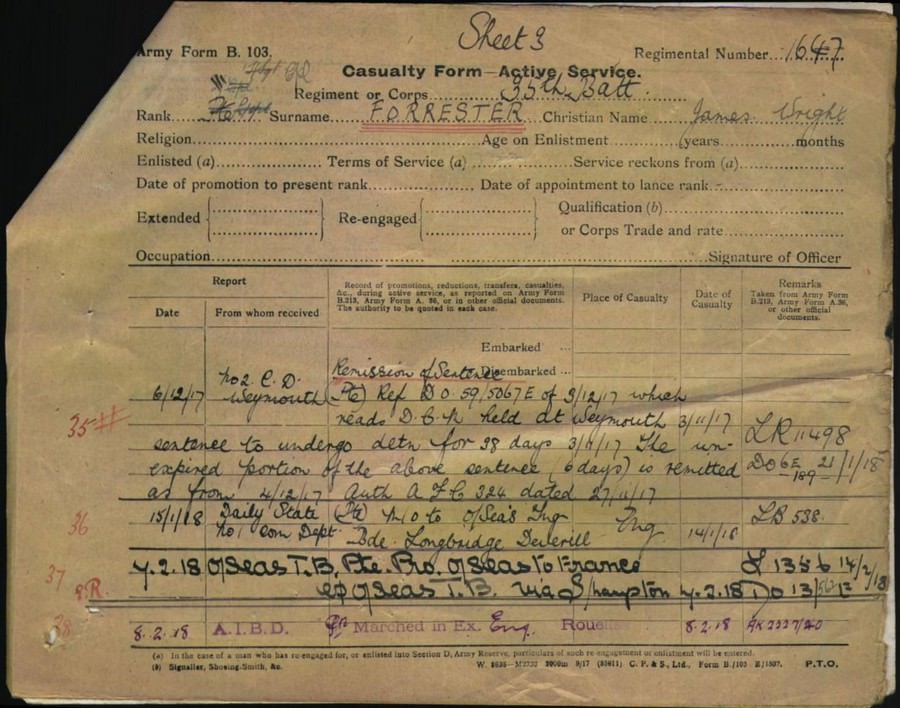 Sheet 3
Army Form B. 103.
Regimental Number 1647
Casualty Form—Active Service.
Regiment or Corps 35th Batt.
Rank Surname FORRESTER Christian Name James Wright
Religion Age on Enlistment years months
Enlisted (a) Terms of Service (a) Service reckons from (a)
Date of promotion to present rank Date of appointment to lance rank
Extended Re-engaged Qualification (b)
or Corps Trade and rate
Occupation Signature of Officer
Report
Date From whom received
Record of promotions, reductions, transfers, casualties,
&c., during active service, as reported on Army Form
B.213, Army Form A. 36, or in other official documents.
The authority to be quoted in each case.
Place of Casualty
Date of
Casualty
Remarks
Taken from Army Form
B.213, Army Form A.36,
or other official
documents.
Embarked ...
Remission of Sentence Disembarked ...
6/12/17 No 2 C.D. Weymouth (Pte) Ref D O 59/5067E of 3/12/17 which
35 reads D.C.M held at Weymouth 3/11/17
sentence to undergo detn for 38 days 3/11/17 The un-
LR 11498
expired portion of the above sentence (6 days) is remitted
DO 6E 21/1/18
189
as from 4/12/17 Auth A F C 324 dated 27/11/17
36 15/1/18 Daily State (Pte) M/O to O/Seas Tng Eng LB 538.
No 1 Com Dept. Bde. Longbridge Deverill 14/1/18
37 7.2.18 O/Seas T.B. Pte. Pro. O/Seas to France L 1356 14/2/18
R. O/Seas T.B. via S/hampton 7.2.18 DO 13
38 8.2.18 A.I.B.D. Marched in Ex. Eng. Rouelles 8.2.18
(a) In the case of a man who has re-engaged for, or enlisted into Section D, Army Reserve, particulars of such re-engagement or enlistment will be entered.
(b) Signaller, Shoeing-Smith, &c. 2000m 9/17 C. P. & S., Ltd., Form B./103 E/1507. P.T.O.